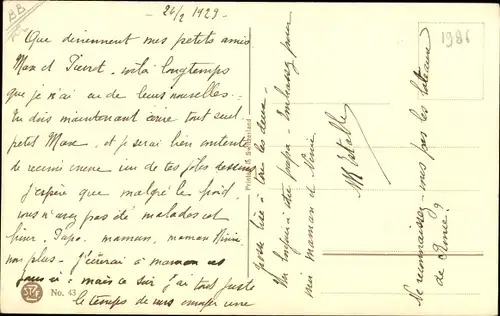 24/2 1929
Que deviennent mes petits amis
Max et Pierrot - voilà longtemps
que je n'ai eu de leurs nouvelles.
Tu dois maintenant écrire tout seul
petit Max, et je serai bien contente
de recevoir encore un de tes jolis dessins
J'espère que malgré le froid,
vous n'avez pas été malades cet
hiver. Papa, maman, maman Ninie,
non plus - J'écrirai à maman
mais ce soir j'ai tout juste
le temps de vous envoyer une
grosse bise à tous les deux -
Un bonjour à papa - Embrassez pour
moi maman et Ninie
Me reconnaissez-vous pas les bateaux
de Rennie?
1986
BB
Printed in Switzerland
No. 43